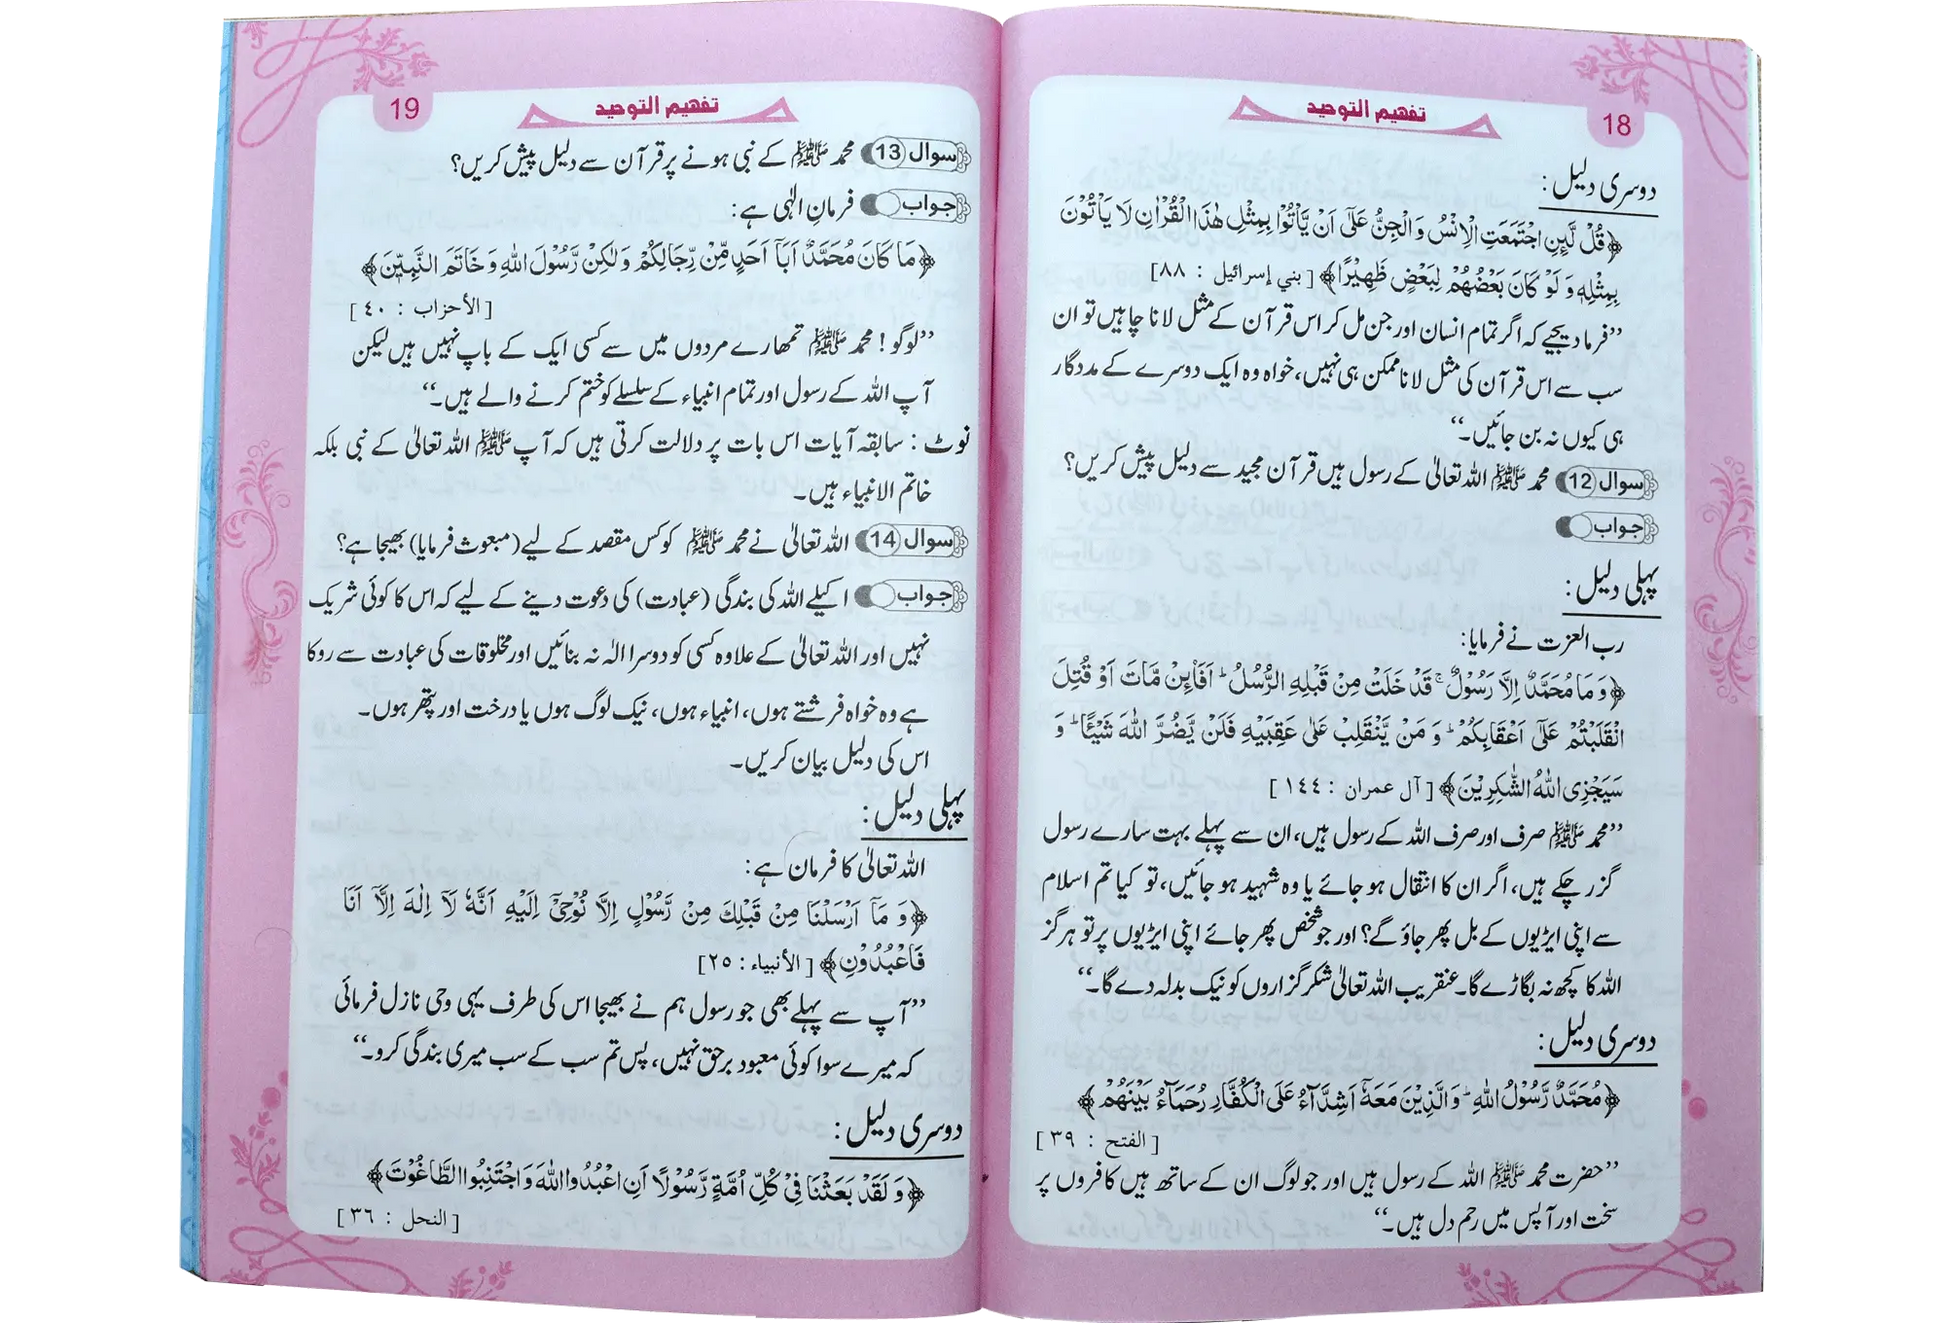 تفهيم التوحيد
18
دوسری دلیل :
﴿قُلْ لَّىِٕنِ اجْتَمَعَتِ الْاِنْسُ وَ الْجِنُّ عَلٰۤى اَنْ يَّاْتُوْا بِمِثْلِ هٰذَا الْقُرْاٰنِ لَا يَاْتُوْنَ
بِمِثْلِهٖ وَ لَوْ كَانَ بَعْضُهُمْ لِبَعْضٍ ظَهِيْرًا﴾ [ بني إسرائيل : ٨٨]
’’فرما دیجیے کہ اگر تمام انسان اور جن مل کر اس قرآن کے مثل لانا چاہیں تو ان
سب سے اس قرآن کی مثل لانا ممکن ہی نہیں، خواہ وہ ایک دوسرے کے مددگار
ہی کیوں نہ بن جائیں۔‘‘
سوال 12 محمد ﷺ اللہ تعالیٰ کے رسول ہیں قرآن مجید سے دلیل پیش کریں؟
جواب
پہلی دلیل :
رب العزت نے فرمایا:
﴿وَ مَا مُحَمَّدٌ اِلَّا رَسُوْلٌ ۚ قَدْ خَلَتْ مِنْ قَبْلِهِ الرُّسُلُ ؕ اَفَا۠ىِٕنْ مَّاتَ اَوْ قُتِلَ
انْقَلَبْتُمْ عَلٰۤى اَعْقَابِكُمْ ؕ وَ مَنْ يَّنْقَلِبْ عَلٰى عَقِبَيْهِ فَلَنْ يَّضُرَّ اللّٰهَ شَيْـًٔا ؕ وَ
سَيَجْزِى اللّٰهُ الشّٰكِرِيْنَ﴾ [ آل عمران : ١٤٤]
’’محمد ﷺ صرف اور صرف اللہ کے رسول ہیں، ان سے پہلے بہت سارے رسول
گزر چکے ہیں، اگر ان کا انتقال ہو جائے یا وہ شہید ہو جائیں، تو کیا تم اسلام
سے اپنی ایڑیوں کے بل پھر جاؤ گے؟ اور جو شخص پھر جائے اپنی ایڑیوں پر تو ہرگز
اللہ کا کچھ نہ بگاڑے گا۔ عنقریب اللہ تعالیٰ شکر گزاروں کو نیک بدلہ دے گا۔‘‘
دوسری دلیل :
﴿مُحَمَّدٌ رَّسُوْلُ اللّٰهِ ؕ وَ الَّذِيْنَ مَعَهٗۤ اَشِدَّآءُ عَلَى الْكُفَّارِ رُحَمَآءُ بَيْنَهُمْ﴾
[ الفتح : ٣٩ ]
’’حضرت محمد ﷺ اللہ کے رسول ہیں اور جو لوگ ان کے ساتھ ہیں کافروں پر
سخت اور آپس میں رحم دل ہیں۔‘‘
تفهيم التوحيد
19
سوال 13 محمد ﷺ کے نبی ہونے پر قرآن سے دلیل پیش کریں؟
جواب فرمانِ الٰہی ہے:
﴿مَا كَانَ مُحَمَّدٌ اَبَاۤ اَحَدٍ مِّنْ رِّجَالِكُمْ وَ لٰكِنْ رَّسُوْلَ اللّٰهِ وَ خَاتَمَ النَّبِيّٖنَ﴾
[ الأحزاب : ٤٠ ]
’’لوگو! محمد ﷺ تمھارے مردوں میں سے کسی ایک کے باپ نہیں ہیں لیکن
آپ اللہ کے رسول اور تمام انبیاء کے سلسلے کو ختم کرنے والے ہیں۔‘‘
نوٹ : سابقہ آیات اس بات پر دلالت کرتی ہیں کہ آپ ﷺ اللہ تعالیٰ کے نبی بلکہ
خاتم الانبیاء ہیں۔
سوال 14 اللہ تعالیٰ نے محمد ﷺ کو کس مقصد کے لیے (مبعوث فرمایا) بھیجا ہے؟
جواب اکیلے اللہ کی بندگی (عبادت) کی دعوت دینے کے لیے کہ اس کا کوئی شریک
نہیں اور اللہ تعالیٰ کے علاوہ کسی کو دوسرا الٰہ نہ بنائیں اور مخلوقات کی عبادت سے روکا
ہے وہ خواہ فرشتے ہوں، انبیاء ہوں، نیک لوگ ہوں یا درخت اور پتھر ہوں۔
اس کی دلیل بیان کریں۔
پہلی دلیل :
اللہ تعالیٰ کا فرمان ہے:
﴿وَ مَاۤ اَرْسَلْنَا مِنْ قَبْلِكَ مِنْ رَّسُوْلٍ اِلَّا نُوْحِيْۤ اِلَيْهِ اَنَّهٗ لَاۤ اِلٰهَ اِلَّاۤ اَنَا
فَاعْبُدُوْنِ﴾ [ الأنبياء : ٢٥]
’’آپ سے پہلے بھی جو رسول ہم نے بھیجا اس کی طرف یہی وحی نازل فرمائی
کہ میرے سوا کوئی معبود برحق نہیں، پس تم سب کے سب میری بندگی کرو۔‘‘
دوسری دلیل :
﴿وَ لَقَدْ بَعَثْنَا فِيْ كُلِّ اُمَّةٍ رَّسُوْلًا اَنِ اعْبُدُوا اللّٰهَ وَ اجْتَنِبُوا الطَّاغُوْتَ﴾
[ النحل : ٣٦ ]